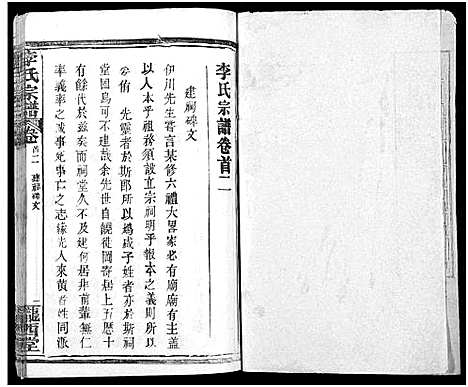 李氏宗譜卷首二
建祠碑文
伊川先生嘗言某修六禮大畧家必有廟廟有主蓋
以人本乎祖務須設立宗祠明乎報本之義則所以
妥侑 先靈者於斯即所以為咸子姓者亦於斯祠
堂固烏可不建哉余先世自饒徙岡居上五歷十
有餘代於茲矣而祠堂久未建何居非前輩無仁
率義率之誠事死事亡之志緣先人來黃者皆同派
李氏宗譜 卷首二 建祠碑文 一 隴西堂